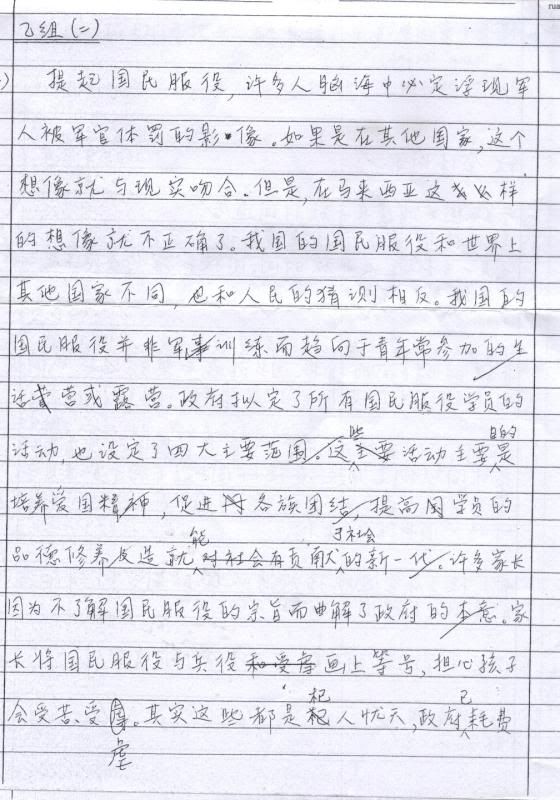 rua
乙组(二)
提起国民服役,许多人脑海中必定浮现军
人被军官体罚的影像。如果是在其他国家,这个
想像就与现实吻合。但是,在马来西亚这样
的想像就不正确了。我国的国民服役和世界上
其他国家不同,也和人民的猜测相反。我国的
国民服役并非军事训练而趋向于青年常参加的生
活营或露营。政府拟定了所有国民服役学员的
活动,也设定了四大主要范围。这些活动主要目的是
培养爱国精神,促进各族团结,提高学员的
品德修养及造就能对社会有贡献于社会的新一代。许多家长
因为不了解国民服役的宗旨而曲解了政府的本意。家
长将国民服役与兵役画上等号,担心孩子
会受苦、受虐。其实这些都是杞人忧天,政府已耗费